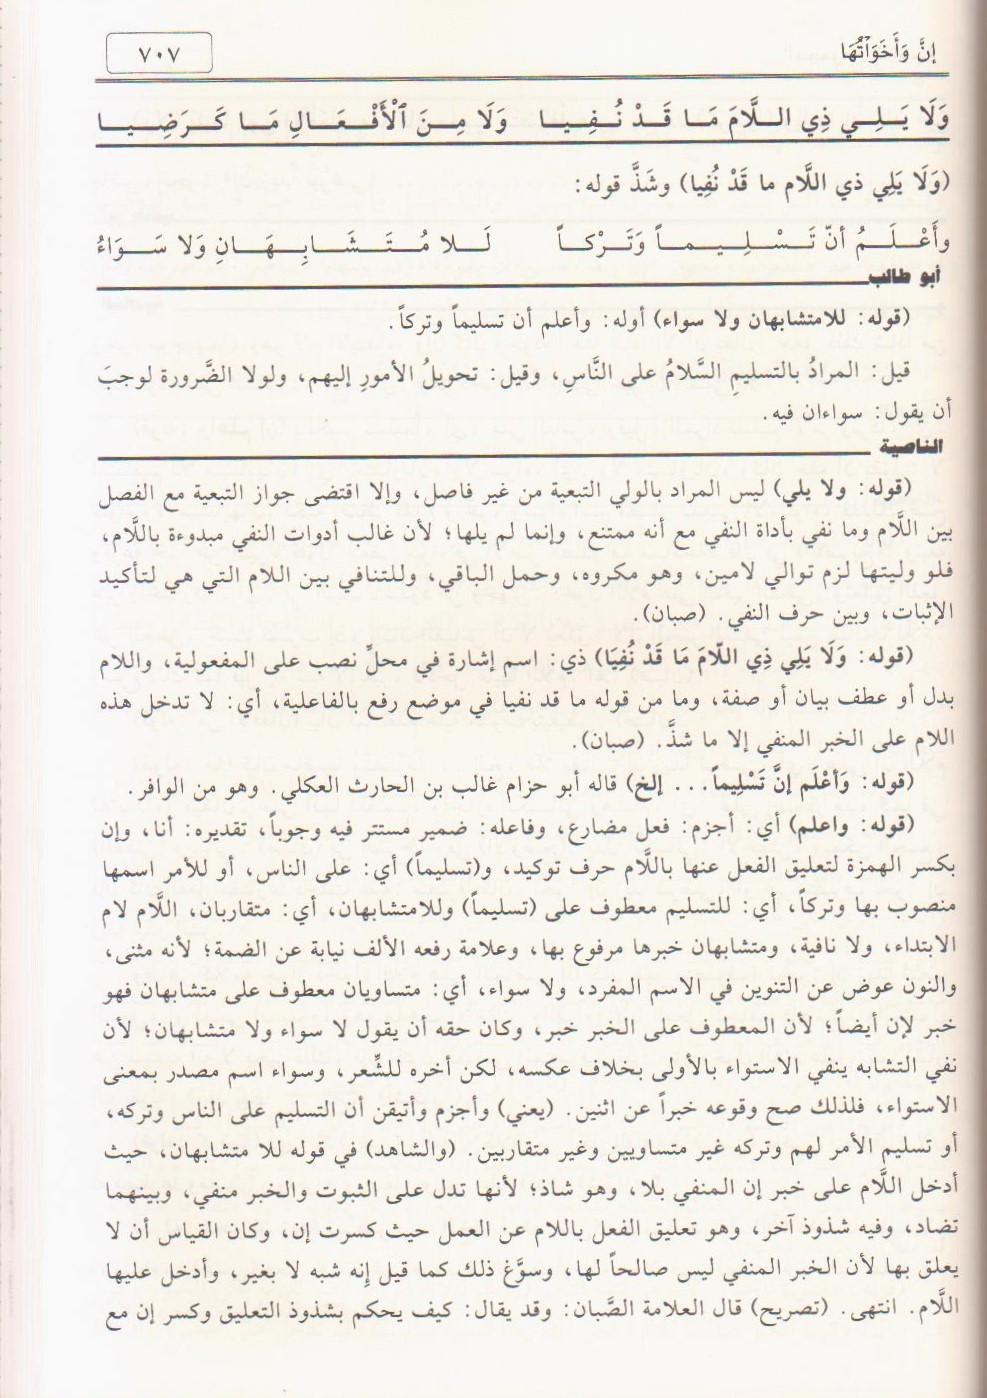 إنَّ وَأَخَوَاتُهَا
٧٠٧
وَلَا يَـلِـي ذِي الـلَّامَ مَـا قَـدْ نُـفِـيـا وَلَا مِـنَ ٱلْأَفْـعَـالِ مَـا كَـرَضِـيـا
(وَلَا يَلِي ذي اللَّام ما قَدْ نُفِيا) وشَذَّ قوله:
وأَعْـلَـمُ أنّ تَـسْـلِـيـمـاً وَتَـرْكـاً لَـلا مُـتَـشَـابِـهَـانِ وَلا سَـوَاءُ
أبو طالب
(قوله: للامتشابهان ولا سواء) أوله: وأعلم أن تسليماً وتركاً.
قيل: المرادُ بالتسليمِ السَّلامُ على النَّاسِ، وقيل: تحويلُ الأمورِ إليهم، ولولا الضَّرورة لوجبَ
أن يقول: سواءان فيه.
الناصية
(قوله: ولا يلي) ليس المراد بالولي التبعية من غير فاصل، وإلا اقتضى جواز التبعية مع الفصل
بين اللَّام وما نفي بأداة النفي مع أنه ممتنع، وإنما لم يلها؛ لأن غالب أدوات النفي مبدوءة باللَّام،
فلو وليتها لزم توالي لامين، وهو مكروه، وحمل الباقي، وللتنافي بين اللام التي هي لتأكيد
الإثبات، وبين حرف النفي. (صبان).
(قوله: وَلَا يَلِي ذِي اللّامَ مَا قَدْ نُفِيَا) ذي: اسم إشارة في محلِّ نصب على المفعولية، واللام
بدل أو عطف بيان أو صفة، وما من قوله ما قد نفيا في موضع رفع بالفاعلية، أي: لا تدخل هذه
اللام على الخبر المنفي إلا ما شذَّ. (صبان).
(قوله: وَأعْلَم إنَّ تَسْلِيماً... إلخ) قاله أبو حزام غالب بن الحارث العكلي. وهو من الوافر.
(قوله: واعلم) أي: أجزم: فعل مضارع، وفاعله: ضمير مستتر فيه وجوباً، تقديره: أنا، وإن
بكسر الهمزة لتعليق الفعل عنها باللَّام حرف توكيد، و(تسليماً) أي: على الناس، أو للأمر اسمها
منصوب بها وتركاً، أي: للتسليم معطوف على (تسليماً) وللامتشابهان، أي: متقاربان، اللَّام لام
الابتداء، ولا نافية، ومتشابهان خبرها مرفوع بها، وعلامة رفعه الألف نيابة عن الضمة؛ لأنه مثنى،
والنون عوض عن التنوين في الاسم المفرد، ولا سواء، أي: متساويان معطوف على متشابهان فهو
خبر لإن أيضاً؛ لأن المعطوف على الخبر خبر، وكان حقه أن يقول لا سواء ولا متشابهان؛ لأن
نفي التشابه ينفي الاستواء بالأولى بخلاف عكسه، لكن أخره للشِّعر، وسواء اسم مصدر بمعنى
الاستواء، فلذلك صح وقوعه خبراً عن اثنين. (يعني) وأجزم وأتيقن أن التسليم على الناس وتركه،
أو تسليم الأمر لهم وتركه غير متساويين وغير متقاربين. (والشاهد) في قوله للا متشابهان، حيث
أدخل اللَّام على خبر إن المنفي بلا، وهو شاذ؛ لأنها تدل على الثبوت والخبر منفي، وبينهما
تضاد، وفيه شذوذ آخر، وهو تعليق الفعل باللام عن العمل حيث كسرت إن، وكان القياس أن لا
يعلق بها لأن الخبر المنفي ليس صالحاً لها، وسوَّغ ذلك كما قيل إنه شبه لا بغير، وأدخل عليها
اللَّام. انتهى. (تصريح) قال العلامة الصَّبان: وقد يقال: كيف يحكم بشذوذ التعليق وكسر إن مع